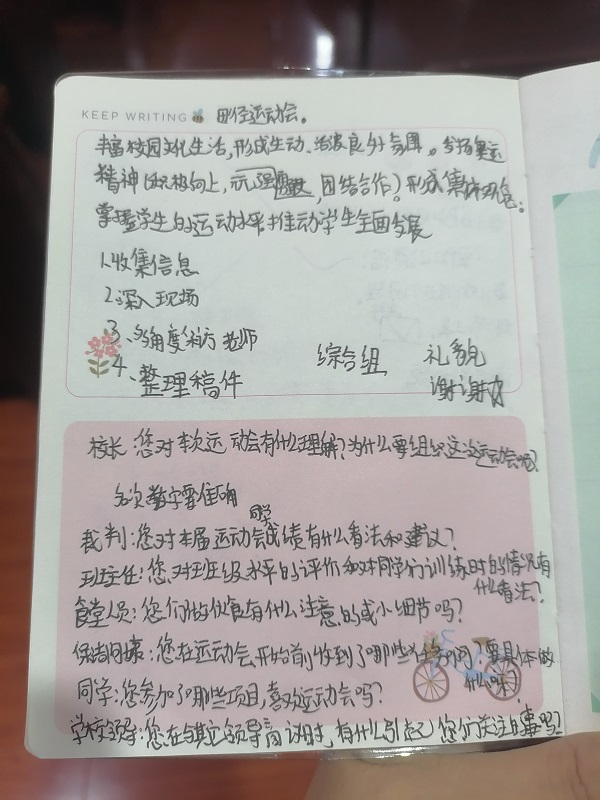 KEEP WRITING 田径运动会。
丰富校园文化生活,形成生动、活泼良好氛围。发扬奥运
精神(积极向上,顽强 ,团结合作)形成集体观念;
掌握学生的运动水平推动学生全面发展
1.收集信息
2.深入现场
3、多角度采访 老师
综合组 礼貌
4、整理稿件
谢谢
校长 您对本次运动会有什么理解?为什么要组织这次运动会呢?
名次数字要准确
同学
裁判:您对本届运动会成绩有什么看法和建议?
班主任:您对班级水平的评价和对同学们训练时的情况有
什么看法?
食堂人员:您们做伙食有什么注意的或小细节吗?
保洁 :您在运动会开始前收到了哪些任务 ?要具体做
什么呀
同学:您参加了哪些项目,喜欢运动会吗?
学校领导:您在与其它领导商议时,有什么引起 您们关注的事吗?